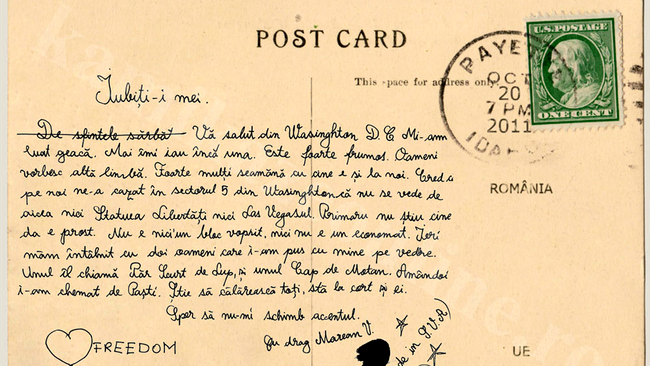 POST CARD
This space for address only
U.S. POSTAGE
ONE CENT
OCT
20
7 PM
2011
Iubiți-i mei.
De sfintele sărbă Vă salut din Wasinghton D.C Mi-am
luat geacă. Mai îmi iau încă una. Este foarte frumos. Oameni
vorbesc altă limbă. Foarte mulți seamănă cu ane e și la noi. Cred că
pe noi ne-a cazat în sectorul 5 din Wasinghton că nu se vede de
aicea nici Statuea Libertăți nici Las Vegasul. Primaru nu știu cine
da e prost. Nu e nici'un bloc vopsit, nici nu e un economat. Ieri
m-am întâlnit cu doi oameni care i-am pus cu mine pe vedre.
Unul îl chiamă Păr Scurt de Lup, și unul Cap de Motan. Amândoi
i-am chemat de Paști. Știe să călărească toți, stă la cort și ei.
Sper să nu-mi schimb accentul.
Cu drag Marean V.
de in S.U.A)
FREEDOM
ROMÂNIA
UE